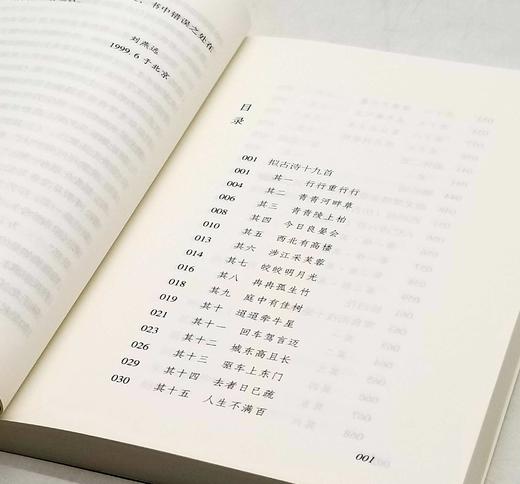 书中错误之处在
刘燕远
1999.6 于北京
目录
001 拟古诗十九首
001 其一 行行重行行
004 其二 青青河畔草
006 其三 青青陵上柏
008 其四 今日良宴会
010 其五 西北有高楼
013 其六 涉江采芙蓉
014 其七 皎皎明月光
016 其八 冉冉孤生竹
018 其九 庭中有佳树
019 其十 迢迢牵牛星
021 其十一 回车驾言迈
023 其十二 城东高且长
026 其十三 驱车上东门
029 其十四 去者日已疏
030 其十五 人生不满百
001